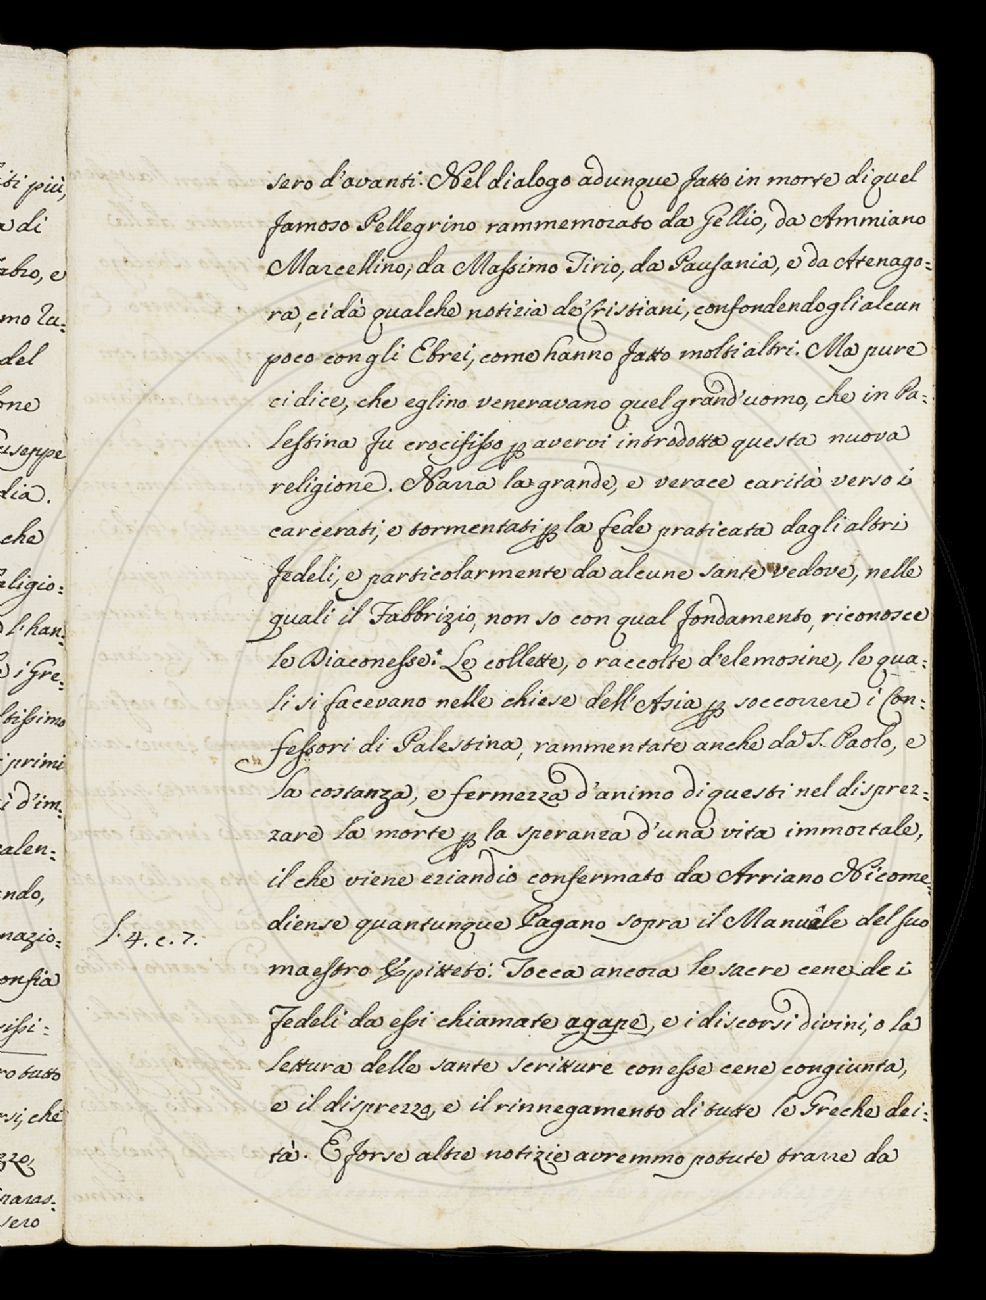 iti più,
a di
abro, e
mo Tu:
del
one
iuseppe
dia.
che
aligio:
l'han:
e i Gre:
ltissimo
i primi
i d'im:
alen:
ndo,
nazio:
onfia
issi:
ro tutto
rsi, che
zzo,
paras:
sero
sero d'avanti. Nel dialogo adunque fatto in morte di quel
famoso Pellegrino rammemorato da Gellio, da Ammiano
Marcellino, da Massimo Tirio, da Pausania, e da Atenago:
ra, ci dà qualche notizia de' Cristiani, confondendogli alcun
poco con gli Ebrei, come hanno fatto molti altri. Ma pure
ci dice, che eglino veneravano quel grand'uomo, che in Pa:
lestina fu crocifisso ꝑ avervi introdotta questa nuova
religione. Narra la grande, e verace carità verso i
carcerati, e tormentati ꝑ la fede praticata dagli altri
fedeli, e particolarmente da alcune sante vedove, nelle
quali il Fabbrizio, non so con qual fondamento, riconosce
le Diaconesse. Le collette, o raccolte d'elemosine, le qua:
li si facevano nelle chiese dell'Asia ꝑ soccorrere i Con:
fessori di Palestina, rammentate anche da S. Paolo, e
la costanza, e fermezza d'animo di questi nel disprez:
zare la morte ꝑ la speranza d'una vita immortale,
il che viene eziandio confermato da Arriano Nicome:
diense quantunque Pagano sopra il Manuale del suo
l. 4. c. 7.
maestro Epitteto. Tocca ancora le sacre cene de i
Fedeli da essi chiamate agape, e i discorsi divini, o la
lettura delle sante scritture con esse cene congiunta,
e il disprezzo, e il rinnegamento di tutte le Greche dei:
tà. E forse altre notizie avremmo potute trarre da